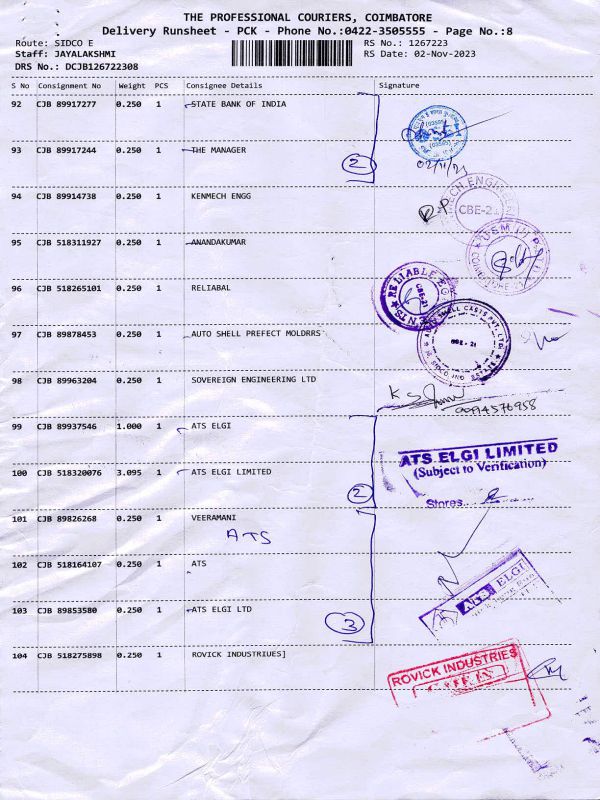 THE PROFESSIONAL COURIERS, COIMBATORE
Delivery Runsheet - PCK - Phone No.:0422-3505555 - Page No.:8
Route: SIDCO E RS No.: 1267223
Staff: JAYALAKSHMI RS Date: 02-Nov-2023
DRS No.: DCJB126722308
S No Consignment No Weight PCS Consignee Details Signature
92 CJB 89917277 0.250 1 STATE BANK OF INDIA
93 CJB 89917244 0.250 1 THE MANAGER
2
02/11/23
94 CJB 89914738 0.250 1 KENMECH ENGG
CBE-21
95 CJB 518311927 0.250 1 ANANDAKUMAR
96 CJB 518265101 0.250 1 RELIABAL
RELIABLE
CBE-21
97 CJB 89878453 0.250 1 AUTO SHELL PREFECT MOLDRRS
SHELL CASTS PVT. LTD.
CBE-21
98 CJB 89963204 0.250 1 SOVEREIGN ENGINEERING LTD
99 CJB 89937546 1.000 1 ATS ELGI
100 CJB 518320076 3.095 1 ATS ELGI LIMITED
2
ATS ELGI LIMITED
(Subject to Verification)
Stores
101 CJB 89826268 0.250 1 VEERAMANI
ATS
102 CJB 518164107 0.250 1 ATS
103 CJB 89853580 0.250 1 ATS ELGI LTD
3
ATS ELGI
104 CJB 518275898 0.250 1 ROVICK INDUSTRIUES]
ROVICK INDUSTRIES